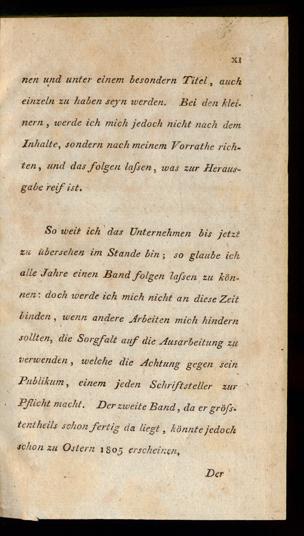 XI
nen und unter einem besondern Titel, auch
einzeln zu haben seyn werden. Bei den klei-
nern, werde ich mich jedoch nicht nach dem
Inhalte, sondern nach meinem Vorrathe rich-
ten, und das folgen laſsen, was zur Heraus-
gabe reif ist.
So weit ich das Unternehmen bis jetzt
zu übersehen im Stande bin; so glaube ich
alle Jahre einen Band folgen laſsen zu kön-
nen: doch werde ich mich nicht an diese Zeit
binden, wenn andere Arbeiten mich hindern
sollten, die Sorgfalt auf die Ausarbeitung zu
verwenden, welche die Achtung gegen sein
Publikum, einem jeden Schriftsteller zur
Pflicht macht. Der zweite Band, da er gröſs-
tentheils schon fertig da liegt, könnte jedoch
schon zu Ostern 1805 erscheinen.
Der